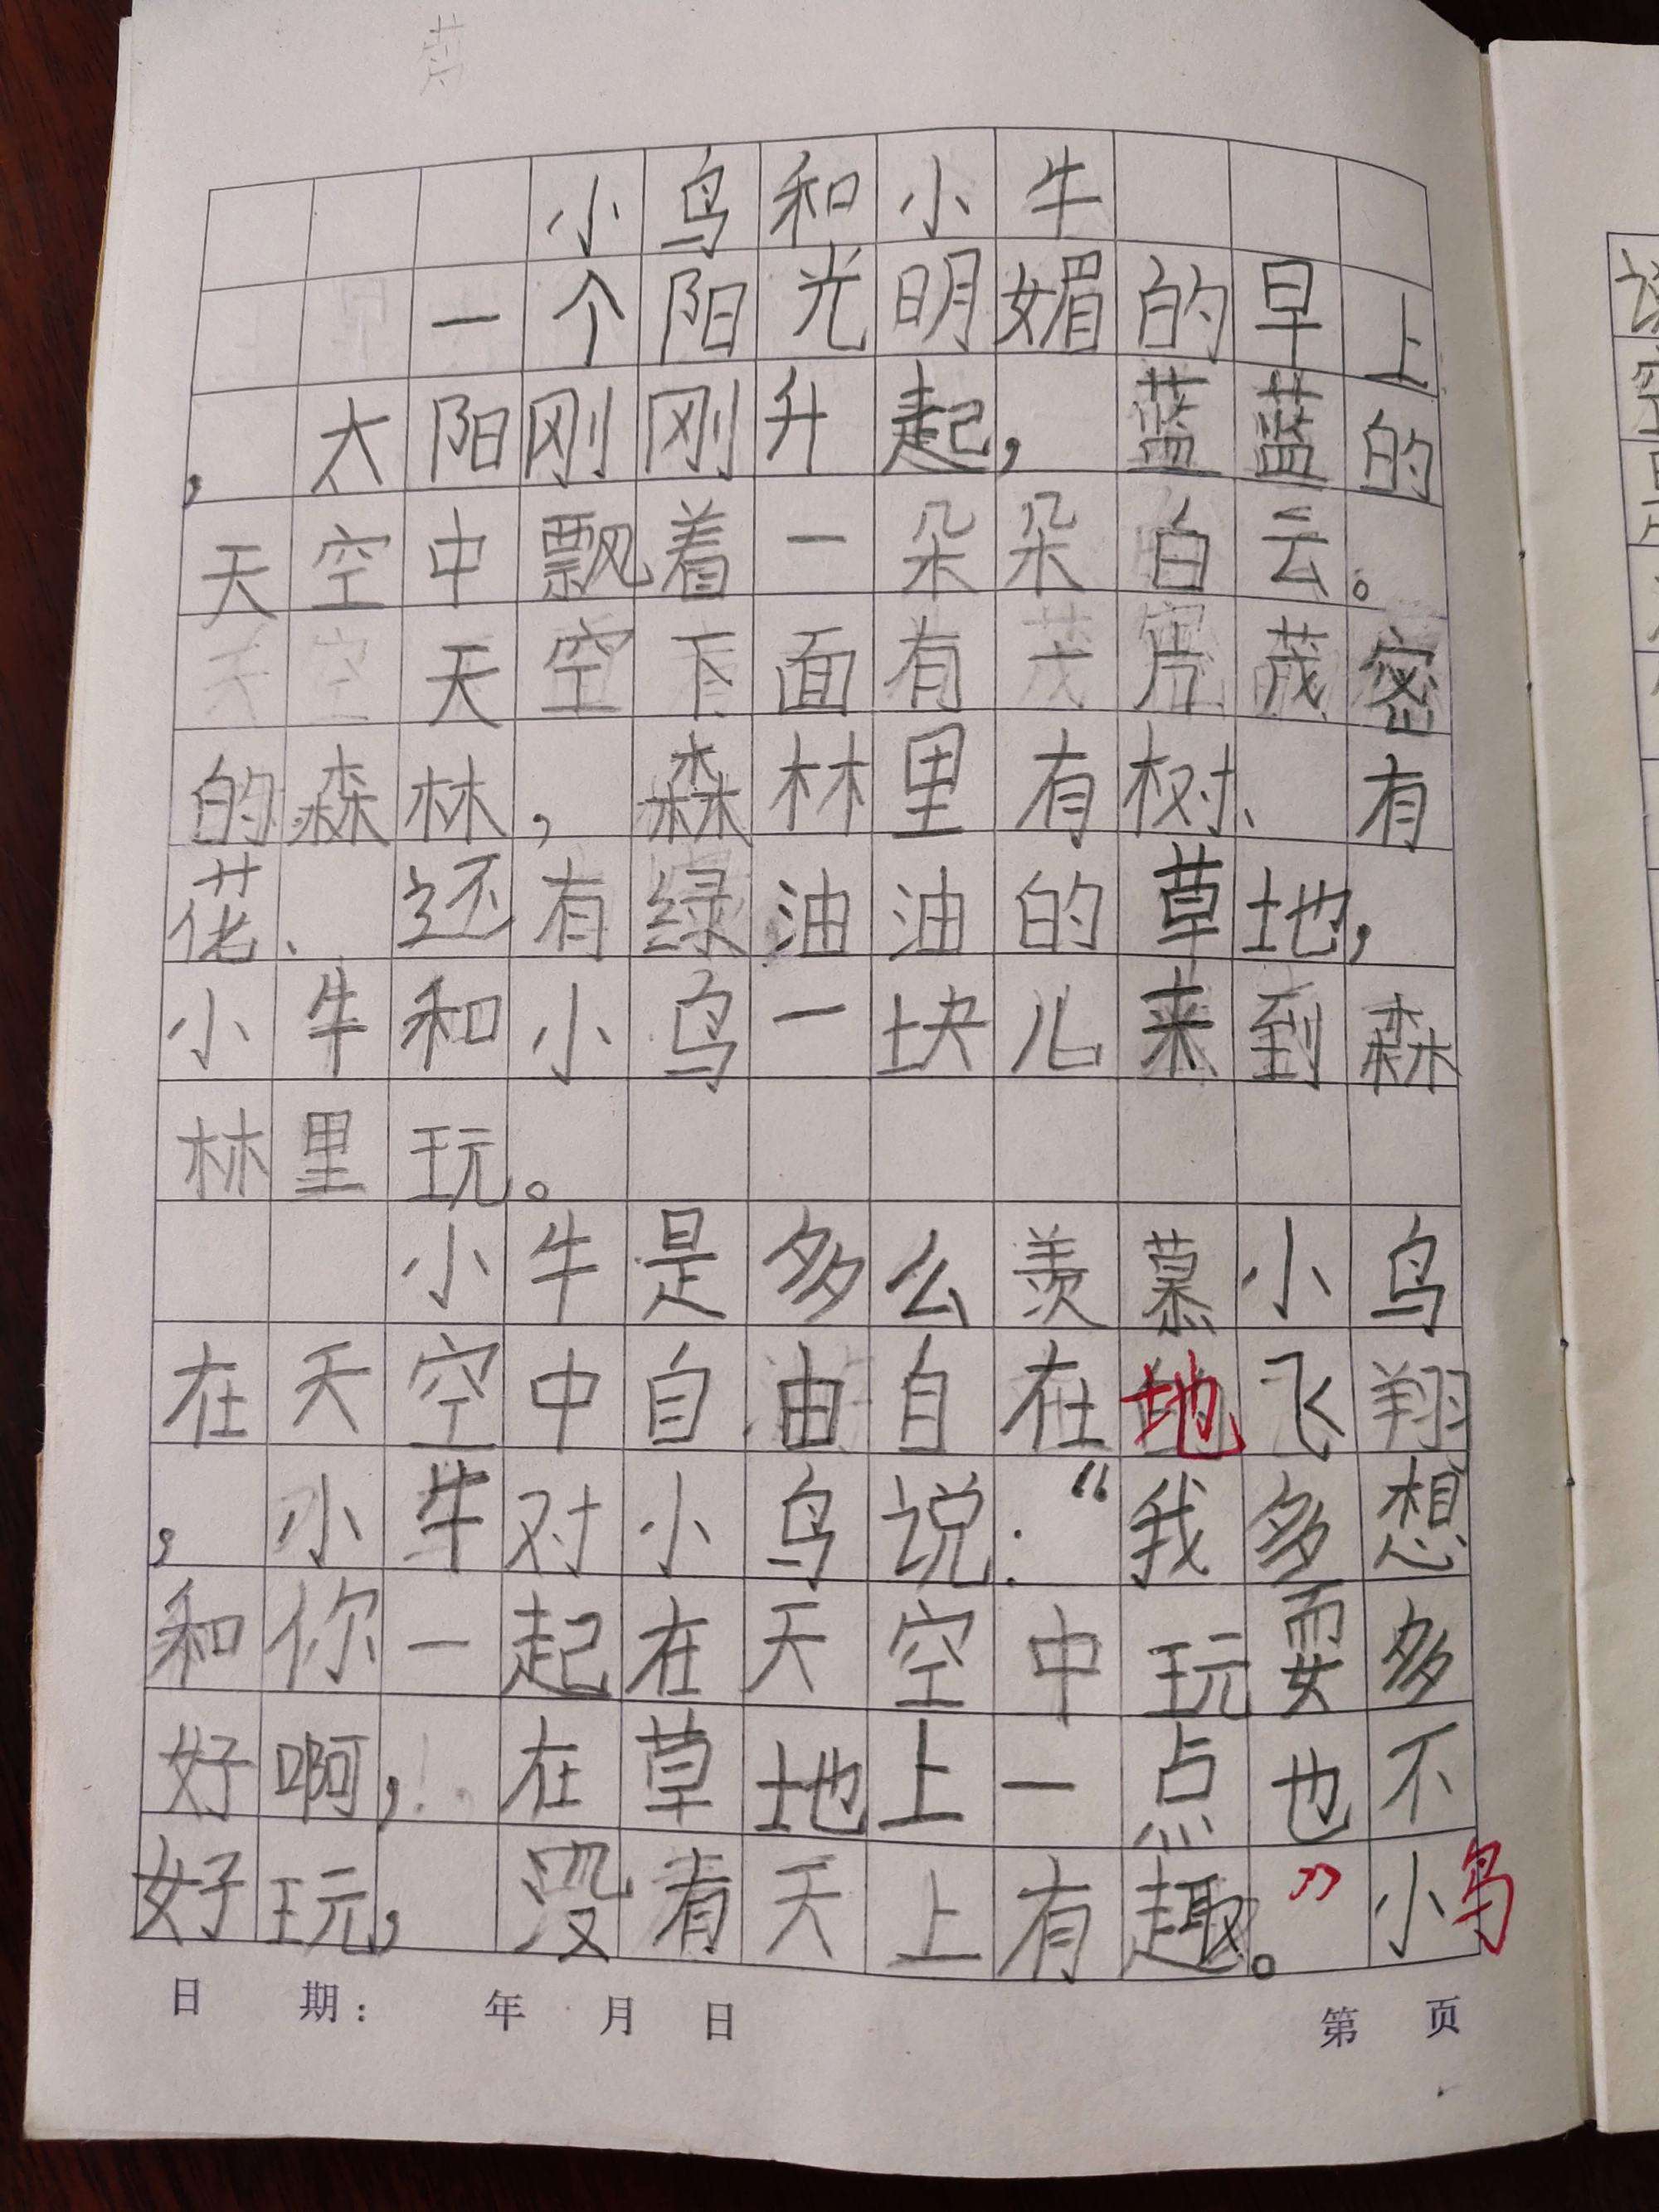 小鸟和小牛
一个阳光明媚的早上
，太阳刚刚升起，蓝蓝的
天空中飘着一朵朵白云。
天空下面有一片茂密
的森林，森林里有树、有
花、还有绿油油的草地，
小牛和小鸟一块儿来到森
林里玩。
小牛是多么羡慕小鸟
在天空中自由自在地飞翔
，小牛对小鸟说：“我多想
和你一起在天空中玩耍多
好啊，在草地上一点也不
好玩，没有天上有趣。”小鸟
日 期： 年 月 日 第 页